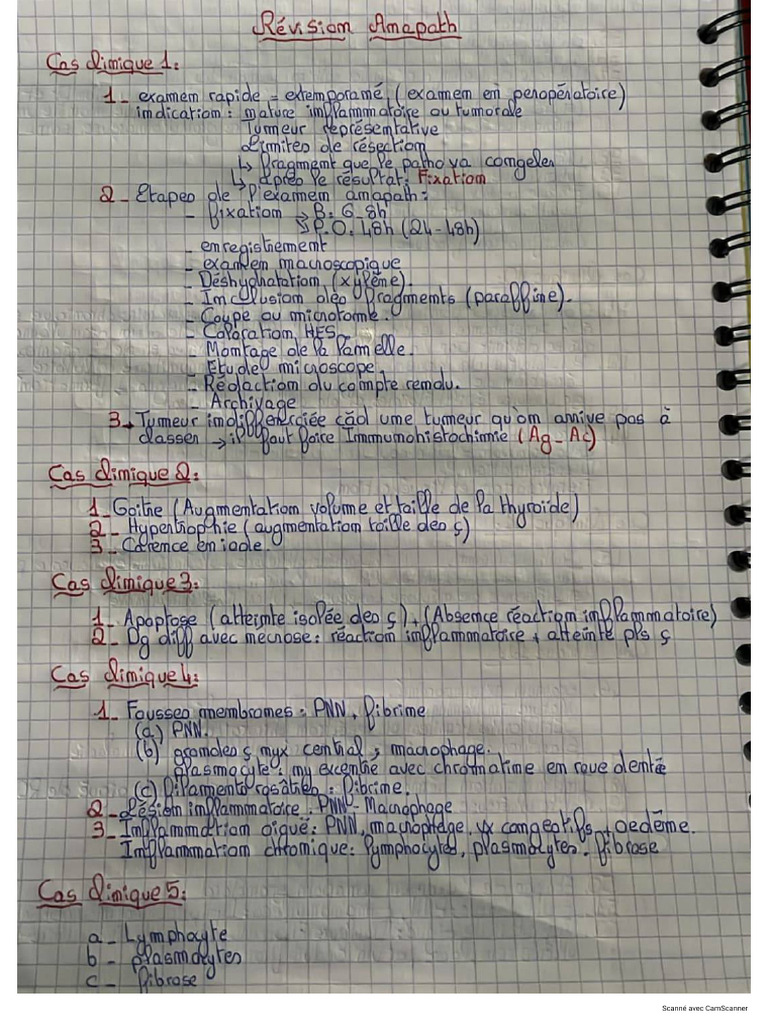 Révision Anapath
Cas clinique 1:
1_ examen rapide = extemporané (examen en peropératoire)
indication: nature inflammatoire ou tumorale
Tumeur représentative
Limites de résection
↳ fragment que le patho va congeler
↳ Après le résultat: Fixation
2_ Etapes de l'examen anapath:
- fixation → B: 6_8h
↘ P.O: 48h (24-48h)
- enregistrement
- examen macroscopique
- Déshydratation (xylème).
- Inclusion des fragments (paraffine).
- Coupe au microtome.
- Coloration HES
- Montage de la lamelle.
- Etude microscope
- Rédaction du compte rendu.
- Archivage
3 → Tumeur indifférenciée càd une tumeur qu'on arrive pas à
classer → il faut faire Immunohistochimie (Ag_Ac)
Cas clinique 2:
1_ Goitre (Augmentation volume et taille de la thyroïde)
2_ Hypertrophie (augmentation taille des ç)
3_ Carence en iode.
Cas clinique 3:
1_ Apoptose (atteinte isolée des ç) + (Absence réaction inflammatoire)
2_ Dg diff avec nécrose: réaction inflammatoire + atteinte pls ç
Cas clinique 4:
1_ Fausses membranes: PNN, fibrine
(a) PNN.
(b) grandes ç central, macrophage.
plasmocyte: excentré avec chromatine en roue dentée
(c) Filaments rosâtres: fibrine.
2_ Lésion inflammatoire: PNN - Macrophage
3_ Inflammation aiguë: PNN, macrophage, vx congestifs + oedème.
Inflammation chronique: lymphocytes, plasmocytes. fibrose
Cas clinique 5:
a_ Lymphocyte
b_ plasmocytes
c_ fibrose
Scanné avec CamScanner